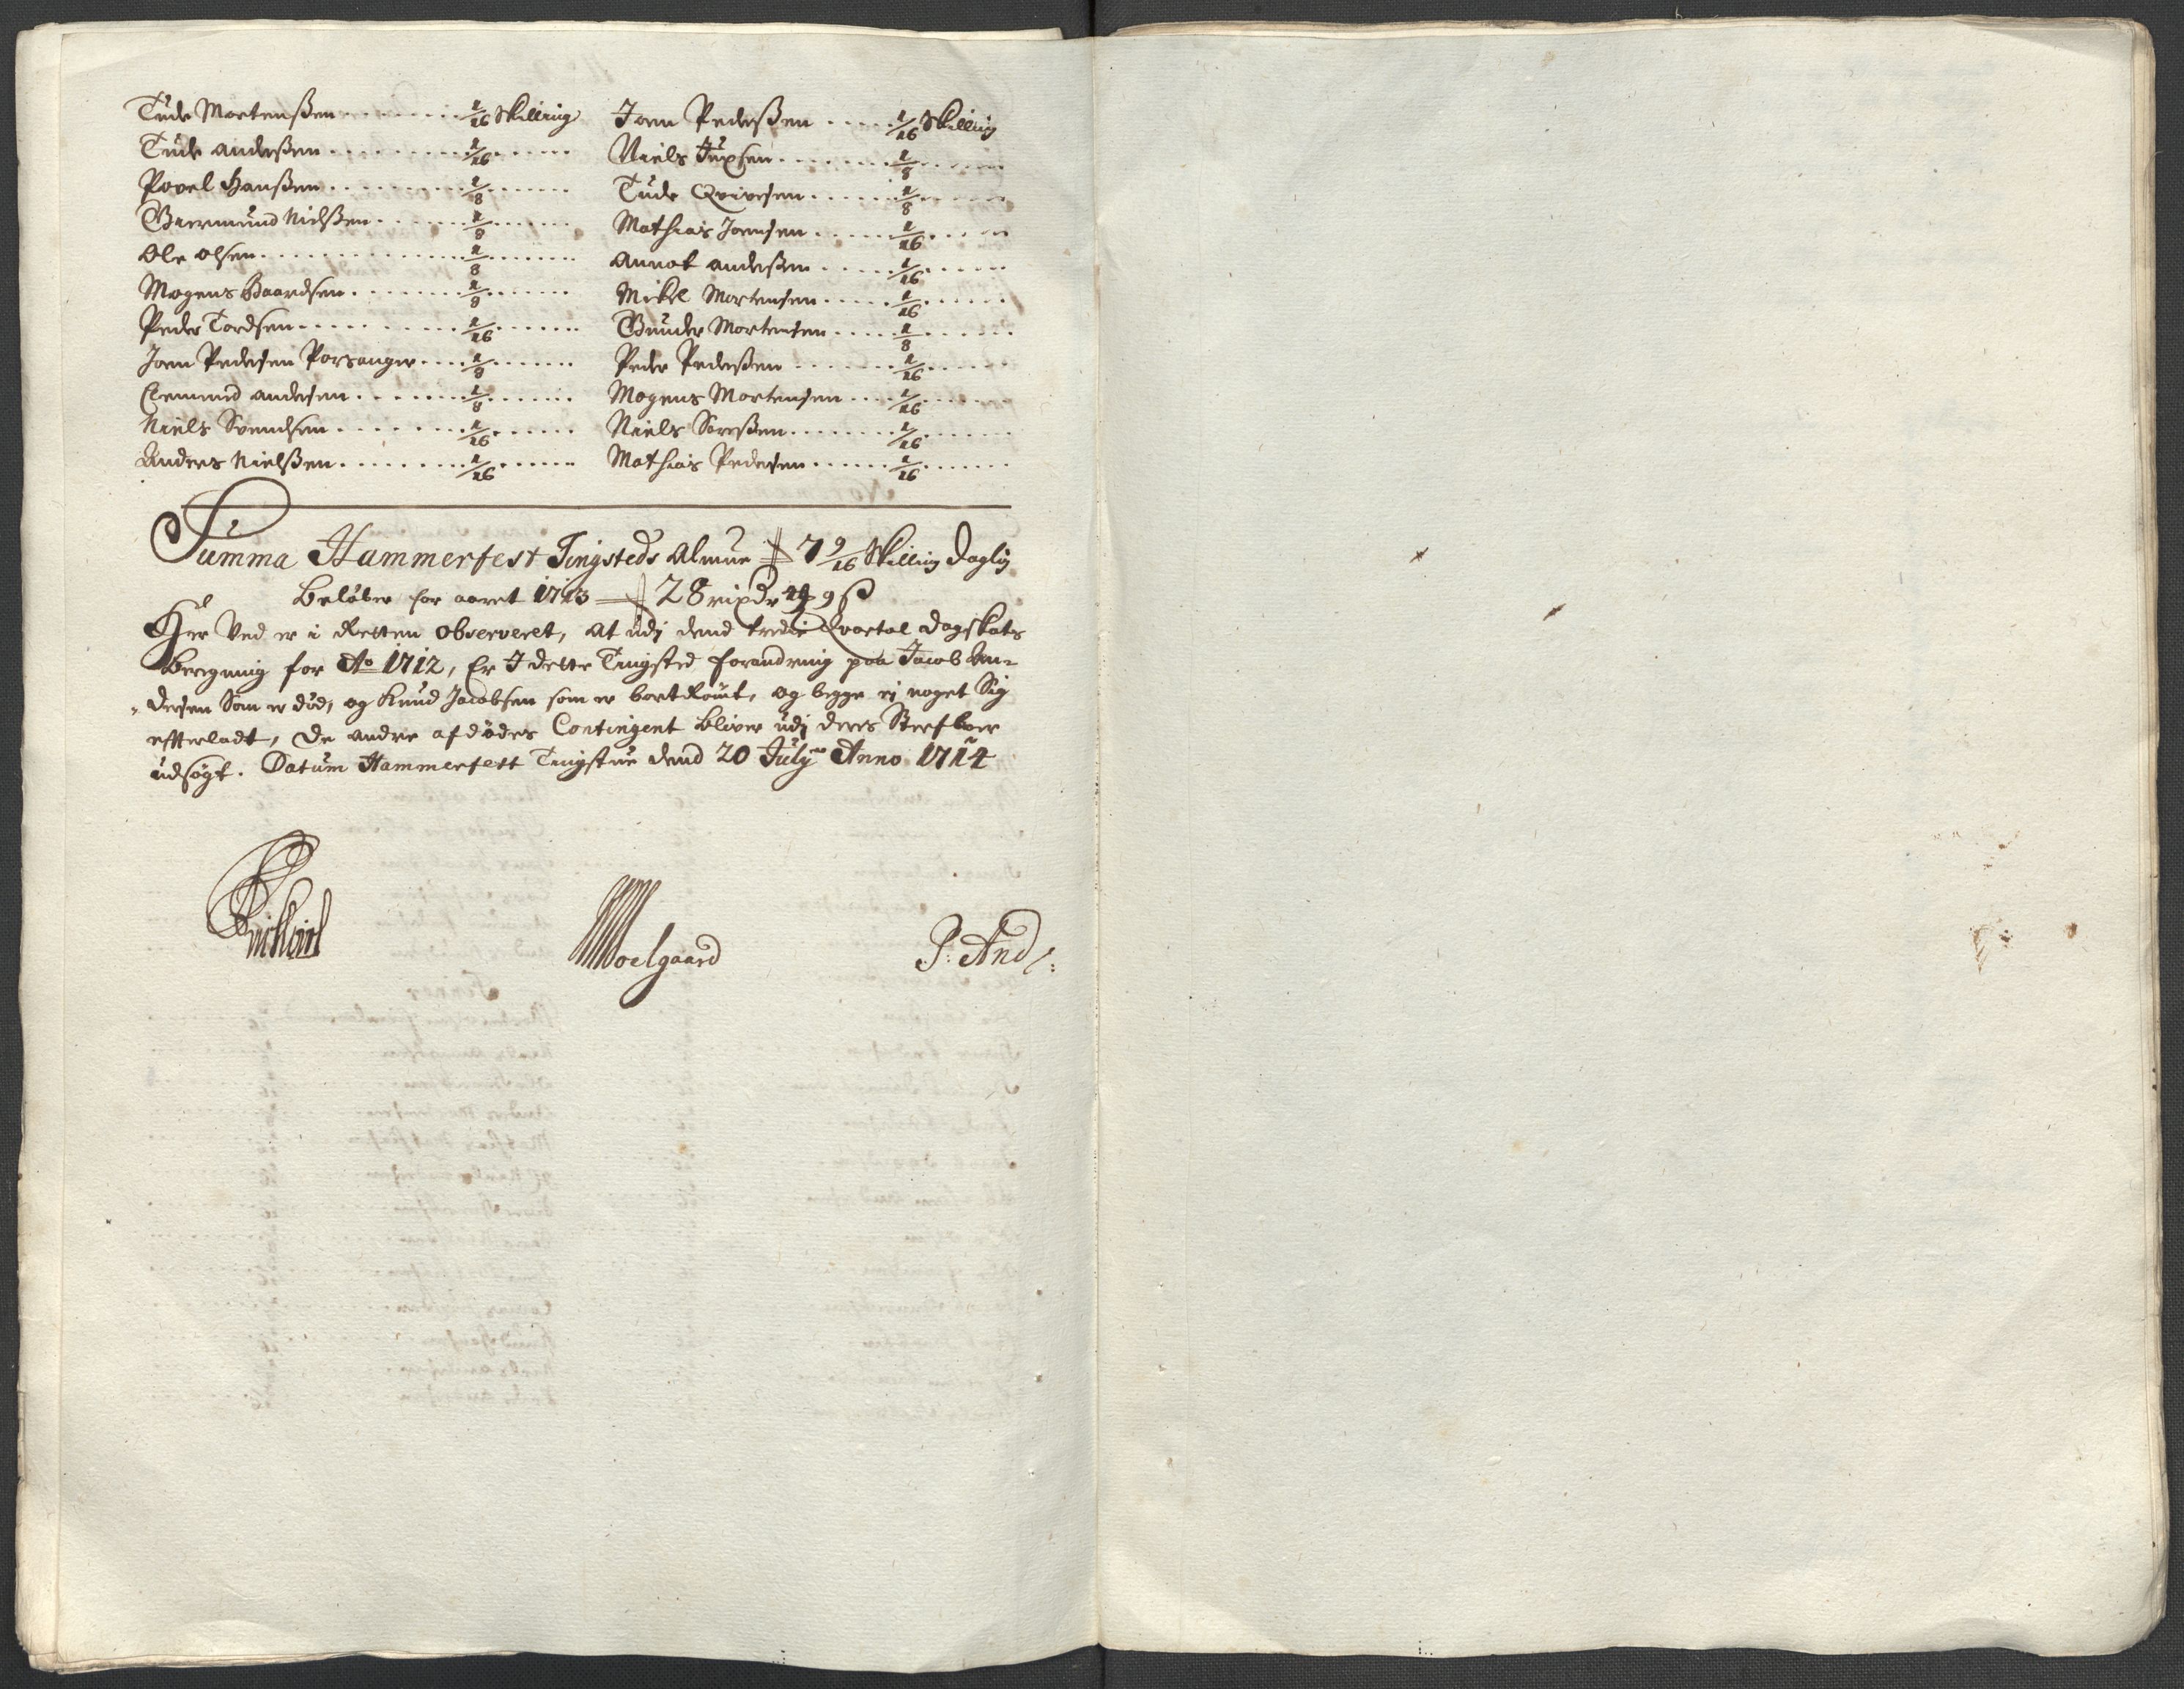 Tude Mortenßen . . . . . . . . 1/16 Skilling
Tude Anderßen . . . . . . . . . 1/16 . . . . . .
Povel Hanßen . . . . . . . . . 1/8 . . . . . . .
Guermund Nielßen . . . . . . 1/8 . . . . . . .
Ole Olsen . . . . . . . . . . . . . 1/8 . . . . . . . .
Mogens Baardsen . . . . . . . 1/8 . . . . . . .
Peder Tordsen . . . . . . . . . . 1/16 . . . . . . .
Joen Pedersen Porsanger . . . . 1/8 . . . . . . .
Clemend Andersen . . . . . . . 1/8 . . . . . . .
Niels Svendsen . . . . . . . . 1/16 . . . . . .
Anders Nielßen . . . . . . . . 1/16 . . . . . .
Joen Pederßen . . . . . 1/16 Skilling
Niels Jupsen . . . . . . . . 1/8 . . . . . .
Tude Qvivesen . . . . . . 1/8 . . . . . .
Mathias Joensen . . . . . . 1/16 . . . . .
Annot Anderßen . . . . . 1/16 . . . . . .
Mikel Mortensen . . . . . 1/16 . . . . . .
Gunder Mortensen . . . . . 1/8 . . . . . .
Peder Pederßen . . . . . . . 1/16 . . . . . .
Mogens Mortensen . . . . 1/16 . . . . . .
Niels Sareßen . . . . . . . . 1/16 . . . . . .
Mathias Pedersen . . . . . . 1/16 . . . . . .
Summa Hammerfest Tingsteds Almue 7 9/16 Skilling Daglig
Beløber for aaret 1713 28 rixdr 9 ß
Her Ved er i Retten observeret, at udj dend tredie Qvartal Dagskats
Beregning for Ao 1712, Er I dette Tingsted forandring paa Jacob An-
dersen Som er død, og Knud Jacobsen som er bortRømt, og begge ej noget Sig
efterladt, De andre afdødes Contingent bliver udj deres Sterfboer
udsøgt. Datum Hammerfest Tingstue dend 20 July Anno 1714
Moelgaard
P: And: